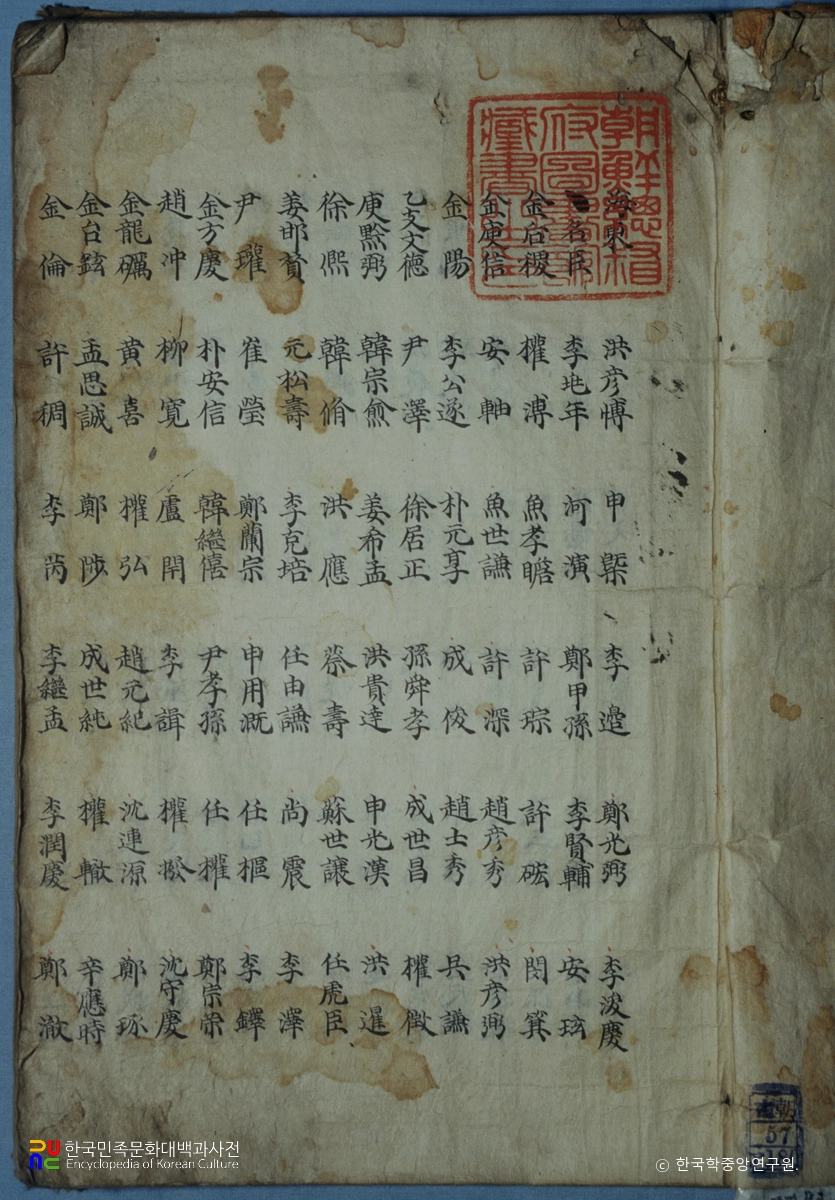 朝鮮總督府圖書館藏書之印
海東 洪彦博 申槩 李邉 鄭光弼 李浚慶
名臣 李兆年 河演 鄭甲孫 李賢輔 安玹
金后稷 權溥 魚孝瞻 許琮 許硡 閔箕
金庾信 安軸 魚世謙 許深 趙彦秀 洪彦弼
金陽 李公遂 朴元亨 成俊 趙士秀 吳謙
乙支文德 尹澤 徐居正 孫舜孝 成世昌 權徵
庾黔弼 韓宗愈 姜希孟 洪貴達 申光漢 洪暹
徐熈 韓脩 洪應 蔡壽 蘇世讓 任虎臣
姜邯賛 元松壽 李克培 任由謙 尚震 李澤
尹瓘 崔瑩 鄭蘭宗 申用漑 任樞 李鐸
金方慶 朴安信 韓繼禧 尹孝孫 任權 鄭宗榮
趙冲 柳寬 盧閈 李諿 權撥 沈守慶
金龍礪 黃喜 權弘 趙元紀 沈連源 鄭琢
金台鉉 孟思誠 鄭陟 成世純 權轍 辛應時
金倫 許稠 李芮 李繼孟 李潤慶 鄭澈
57
한국민족문화대백과사전
Encyclopedia of Korean Culture
© 한국학중앙연구원.